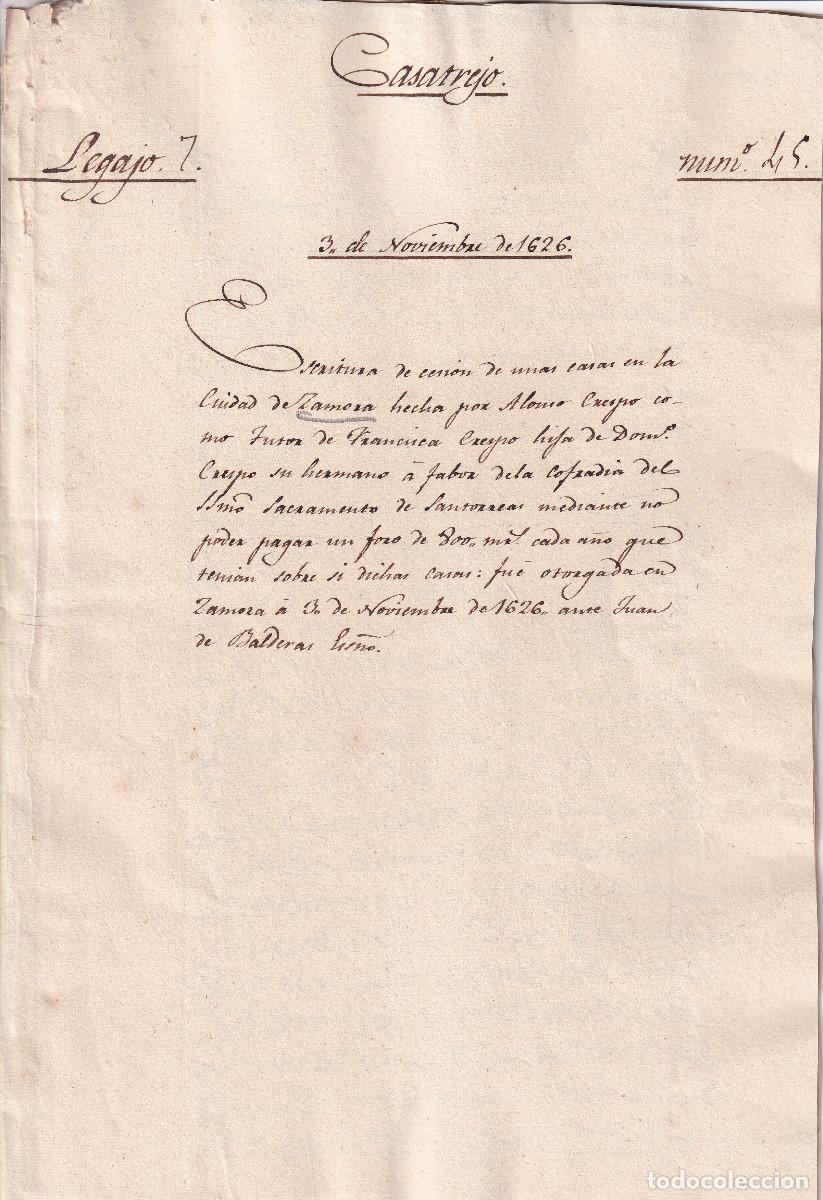 Casatrejo.
Legajo. 7.
num.º 45.
3,, de Noviembre de 1626.
Escritura de cesion de unas casas en la
Ciudad de Zamora hecha por Alonso Crespo co-
mo Tutor de Francisca Crespo hija de Dom.º
Crespo su hermano à fabor dela Cofradia del
SSmõ Sacramento de Santorreas mediante no
poder pagar un foro de 800,, mrs. cada año que
tenian sobre si dichas casas: fué otorgada en
Zamora à 3,, de Noviembre de 1626,, ante Juan
de Balderas Essño.
todocoleccion